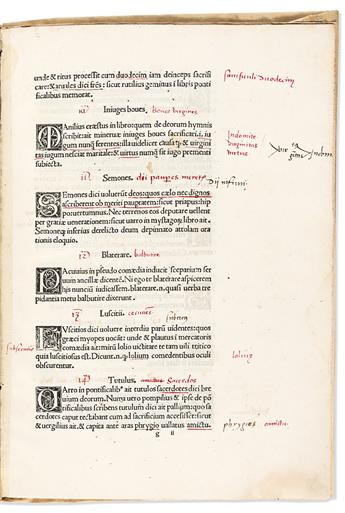 unde & ritus processit cum duodecim iam deinceps sacrificare:
care: & aruales dici frēs: sicut rutilius geminus ī libris ponti
ficalibus memorat.
Iniuges boues. boues virgines
MAnilius crestus in libro: quem de deorum hymnis
scribit ait mineruæ iniuges boues sacrificari. i. iu
gum nunq̄ ferentes: illa uidelicet causa: q̄ & uirgini
tas iugum nesciat maritale: & uirtus nunq̄ sit iugo prementi
subiecta.
Indomite
virginitas
virtus
Semones. dii
SEmones dici uoluerunt deos: quos cælo nec dignos
ascriberent ob meriti paupertatem: sicut priapus: hip
po: uertumnus. Nec terrenos eos deputare uellent
per gratiæ uenerationem: sicut uarro in mystagog. libro ait.
Semoneq; inferius derelicto deum depinnato attolam ora
tionis eloquio.
Blaterare. balbutire
PAcuuius in pseudo comœdia inducit
uum ancillæ dicentē. Ni ego te blaterare aspicerem
his nunciū iudicassem. blaterare. n. quasi uerba tre
pidantia metu balbutire dixerunt.
Luscitii.
FVscitios dici uoluere interdiu parū uidentes: quos
græci myopes uocant: unde & plautus ī mercatoris
comœdia ait: mirū lolio uictitare te tam uili tritico:
quia luscitiosus est. Dicunt. n. q lolium comedentibus oculi
obscurentur.
lolium
Tutulus. amictus Sacerdos
VArro in pontificalib⁹ ait tutulos sacerdotes dici bre
uium deorum. Numa uero pompilius & ipse de pō
tificalibus scribens tutulum dici ait pallium: quo sa
cerdotes caput tectabant cum ad sacrificium accessissēt: sicut
& uergilius ait. & capita ante aras phrygio uallatus amictu.
phrygio amictu
g ii